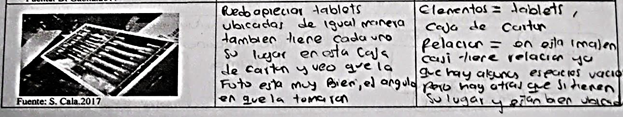 Fuente: S. Cala.2017
Puedo apreciar tablets
ubicadas de igual manera
tambien tiene cada uno
su lugar en esta Caja
de carton y veo que la
Foto esta muy Bien, el angulo
en que la tomaron
Elementos = tablets,
Caja de Carton
Relacion = en esta imajen
casi tiene relacion ya
que hay algunos espacios vacio
pero hay otras que si tienen
su lugar y estan bien ubicad